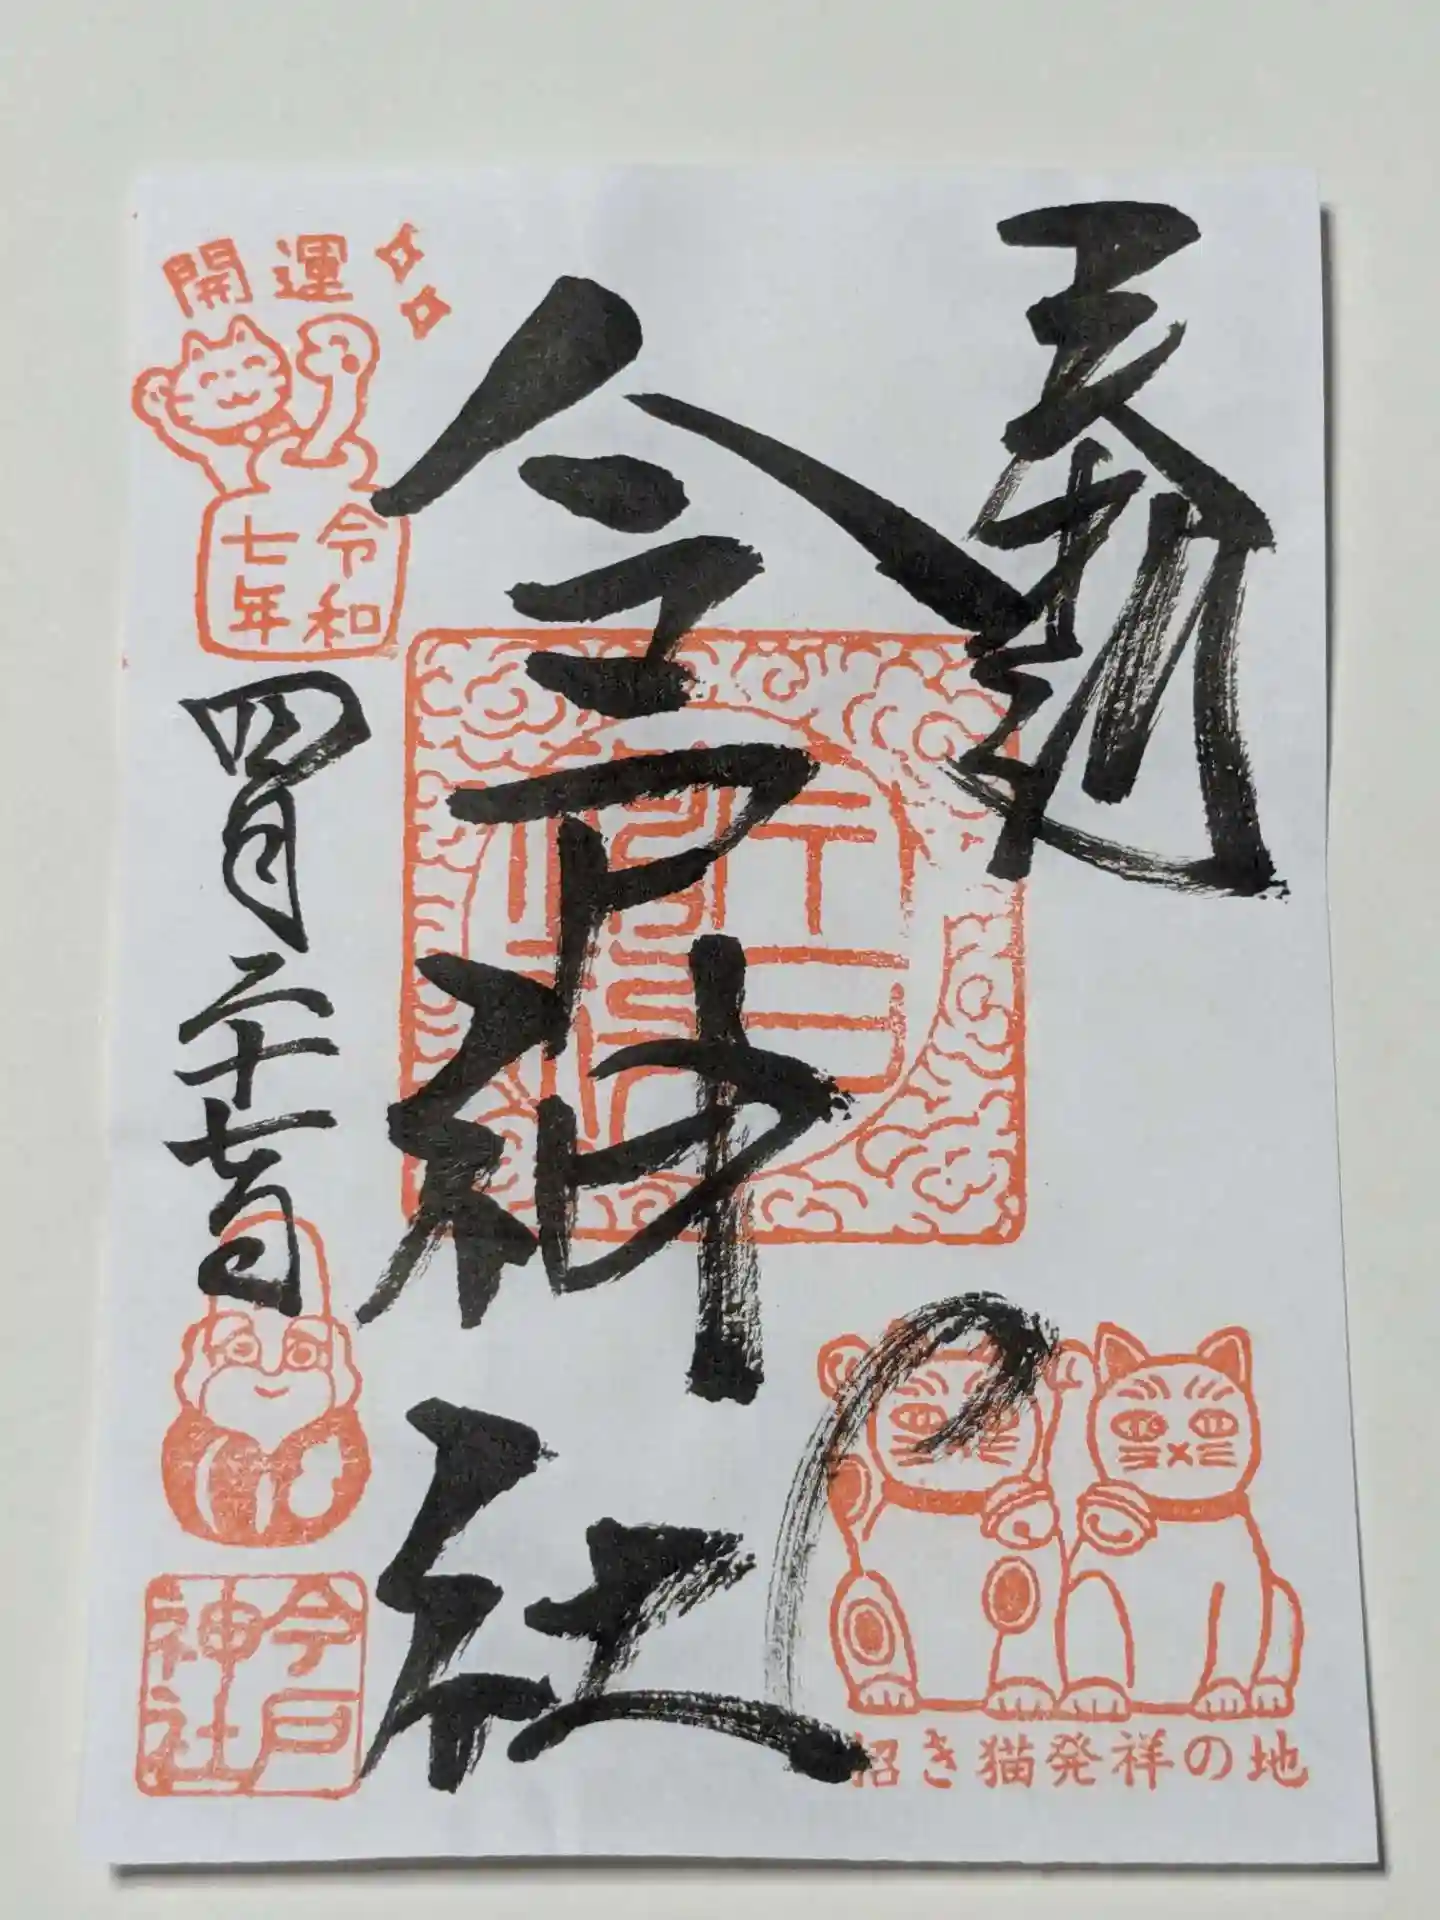 奉拝
今戸神社
開運
令和
七年
四月二十七日
今戸
神社
招き猫発祥の地